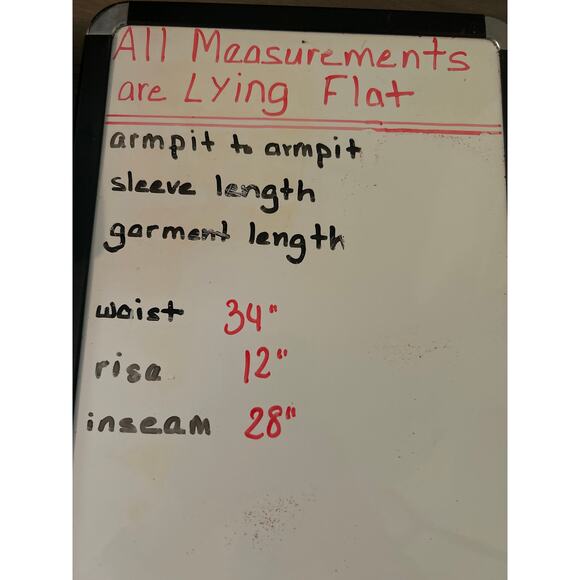 All Measurements
are Lying Flat
armpit to armpit
sleeve length
garment length
waist 34"
rise 12"
inseam 28"